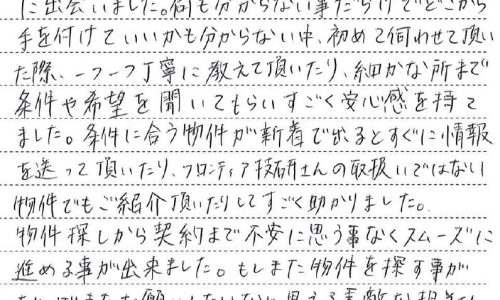 に出会いました。何も分からない事だらけでどこから
手を付けていいかも分からない中、初めて伺わせて頂い
た際、一つ一つ丁寧に教えて頂いたり、細かな所まで
条件や希望を聞いてもらいすごく安心感を持て
ました。条件に合う物件が新着で出るとすぐに情報
を送って頂いたり、フロンティア技研さんの取扱いではない
物件でもご紹介頂いたりしてすごく助かりました。
物件探しから契約まで不安に思う事なくスムーズに
進める事が出来ました。もしまた物件を探す事が